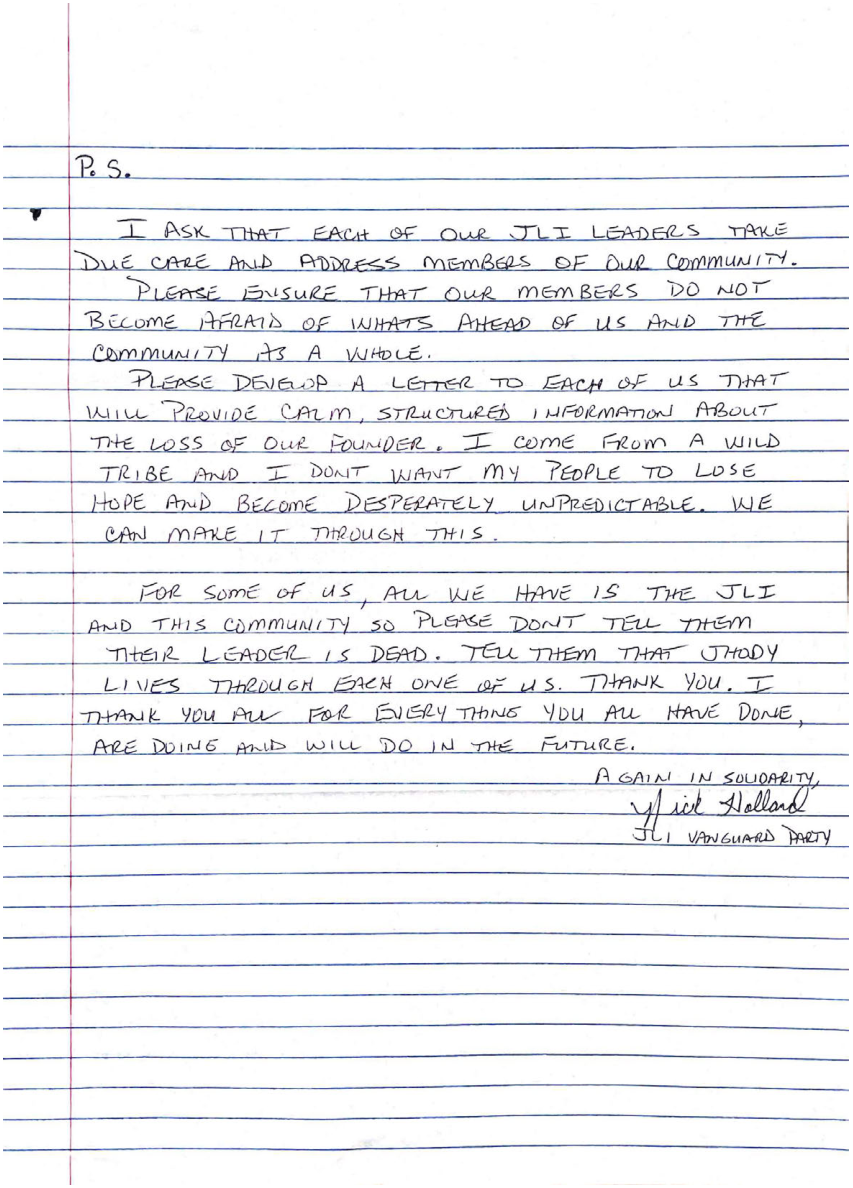 P. S.
I ASK THAT EACH OF OUR JLI LEADERS TAKE
DUE CARE AND ADDRESS MEMBERS OF OUR COMMUNITY.
PLEASE ENSURE THAT OUR MEMBERS DO NOT
BECOME AFRAID OF WHATS AHEAD OF US AND THE
COMMUNITY AS A WHOLE.
PLEASE DEVELOP A LETTER TO EACH OF US THAT
WILL PROVIDE CALM, STRUCTURED INFORMATION ABOUT
THE LOSS OF OUR FOUNDER. I COME FROM A WILD
TRIBE AND I DONT WANT MY PEOPLE TO LOSE
HOPE AND BECOME DESPERATELY UNPREDICTABLE. WE
CAN MAKE IT THROUGH THIS.
FOR SOME OF US, ALL WE HAVE IS THE JLI
AND THIS COMMUNITY SO PLEASE DONT TELL THEM
THEIR LEADER IS DEAD. TELL THEM THAT JHODY
LIVES THROUGH EACH ONE OF US. THANK YOU. I
THANK YOU ALL FOR EVERY THING YOU ALL HAVE DONE,
ARE DOING AND WILL DO IN THE FUTURE.
AGAIN IN SOLIDARITY,
Nick Holland
JLI VANGUARD PARTY